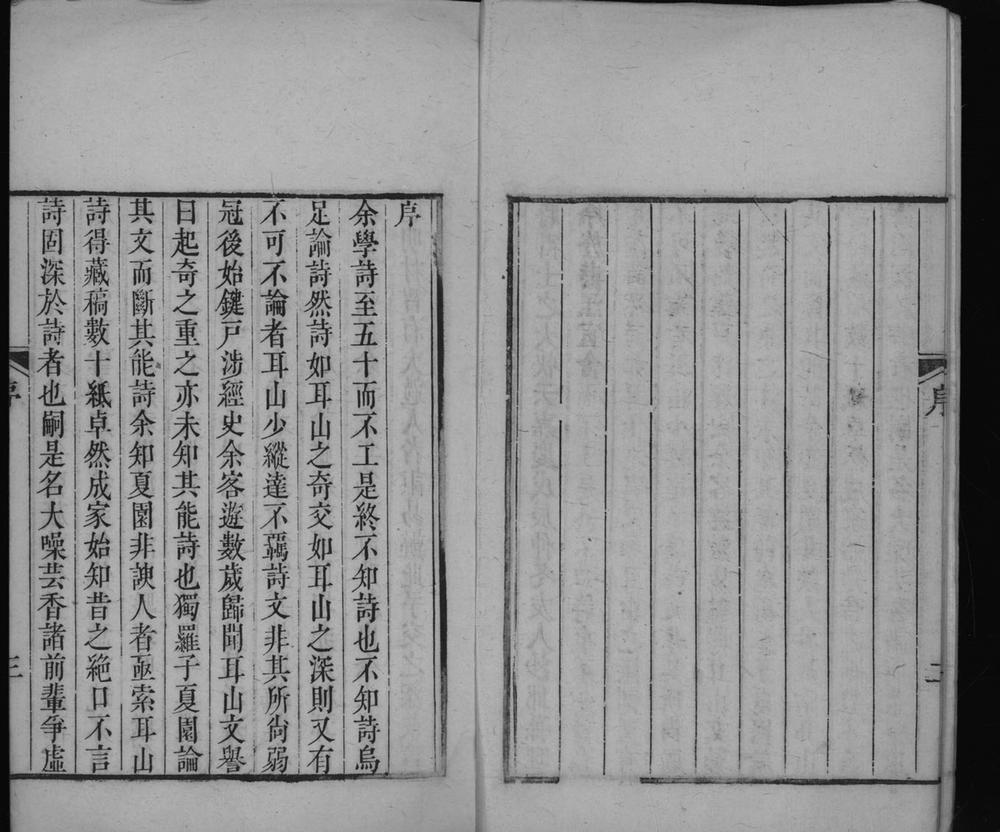 序
二
序
余學詩至五十而不工是終不知詩也不知詩烏
足論詩然詩如耳山之奇交如耳山之深則又有
不可不論者耳山少縱達不羈詩文非其所尙弱
冠後始鍵戸涉經史余客遊數歲歸聞耳山文譽
日起奇之重之亦未知其能詩也獨羅子夏園論
其文而斷其能詩余知夏園非諛人者亟索耳山
詩得藏稿數十紙卓然成家始知昔之絶口不言
詩固深於詩者也嗣是名大噪芸香諸前輩爭虛
序
三